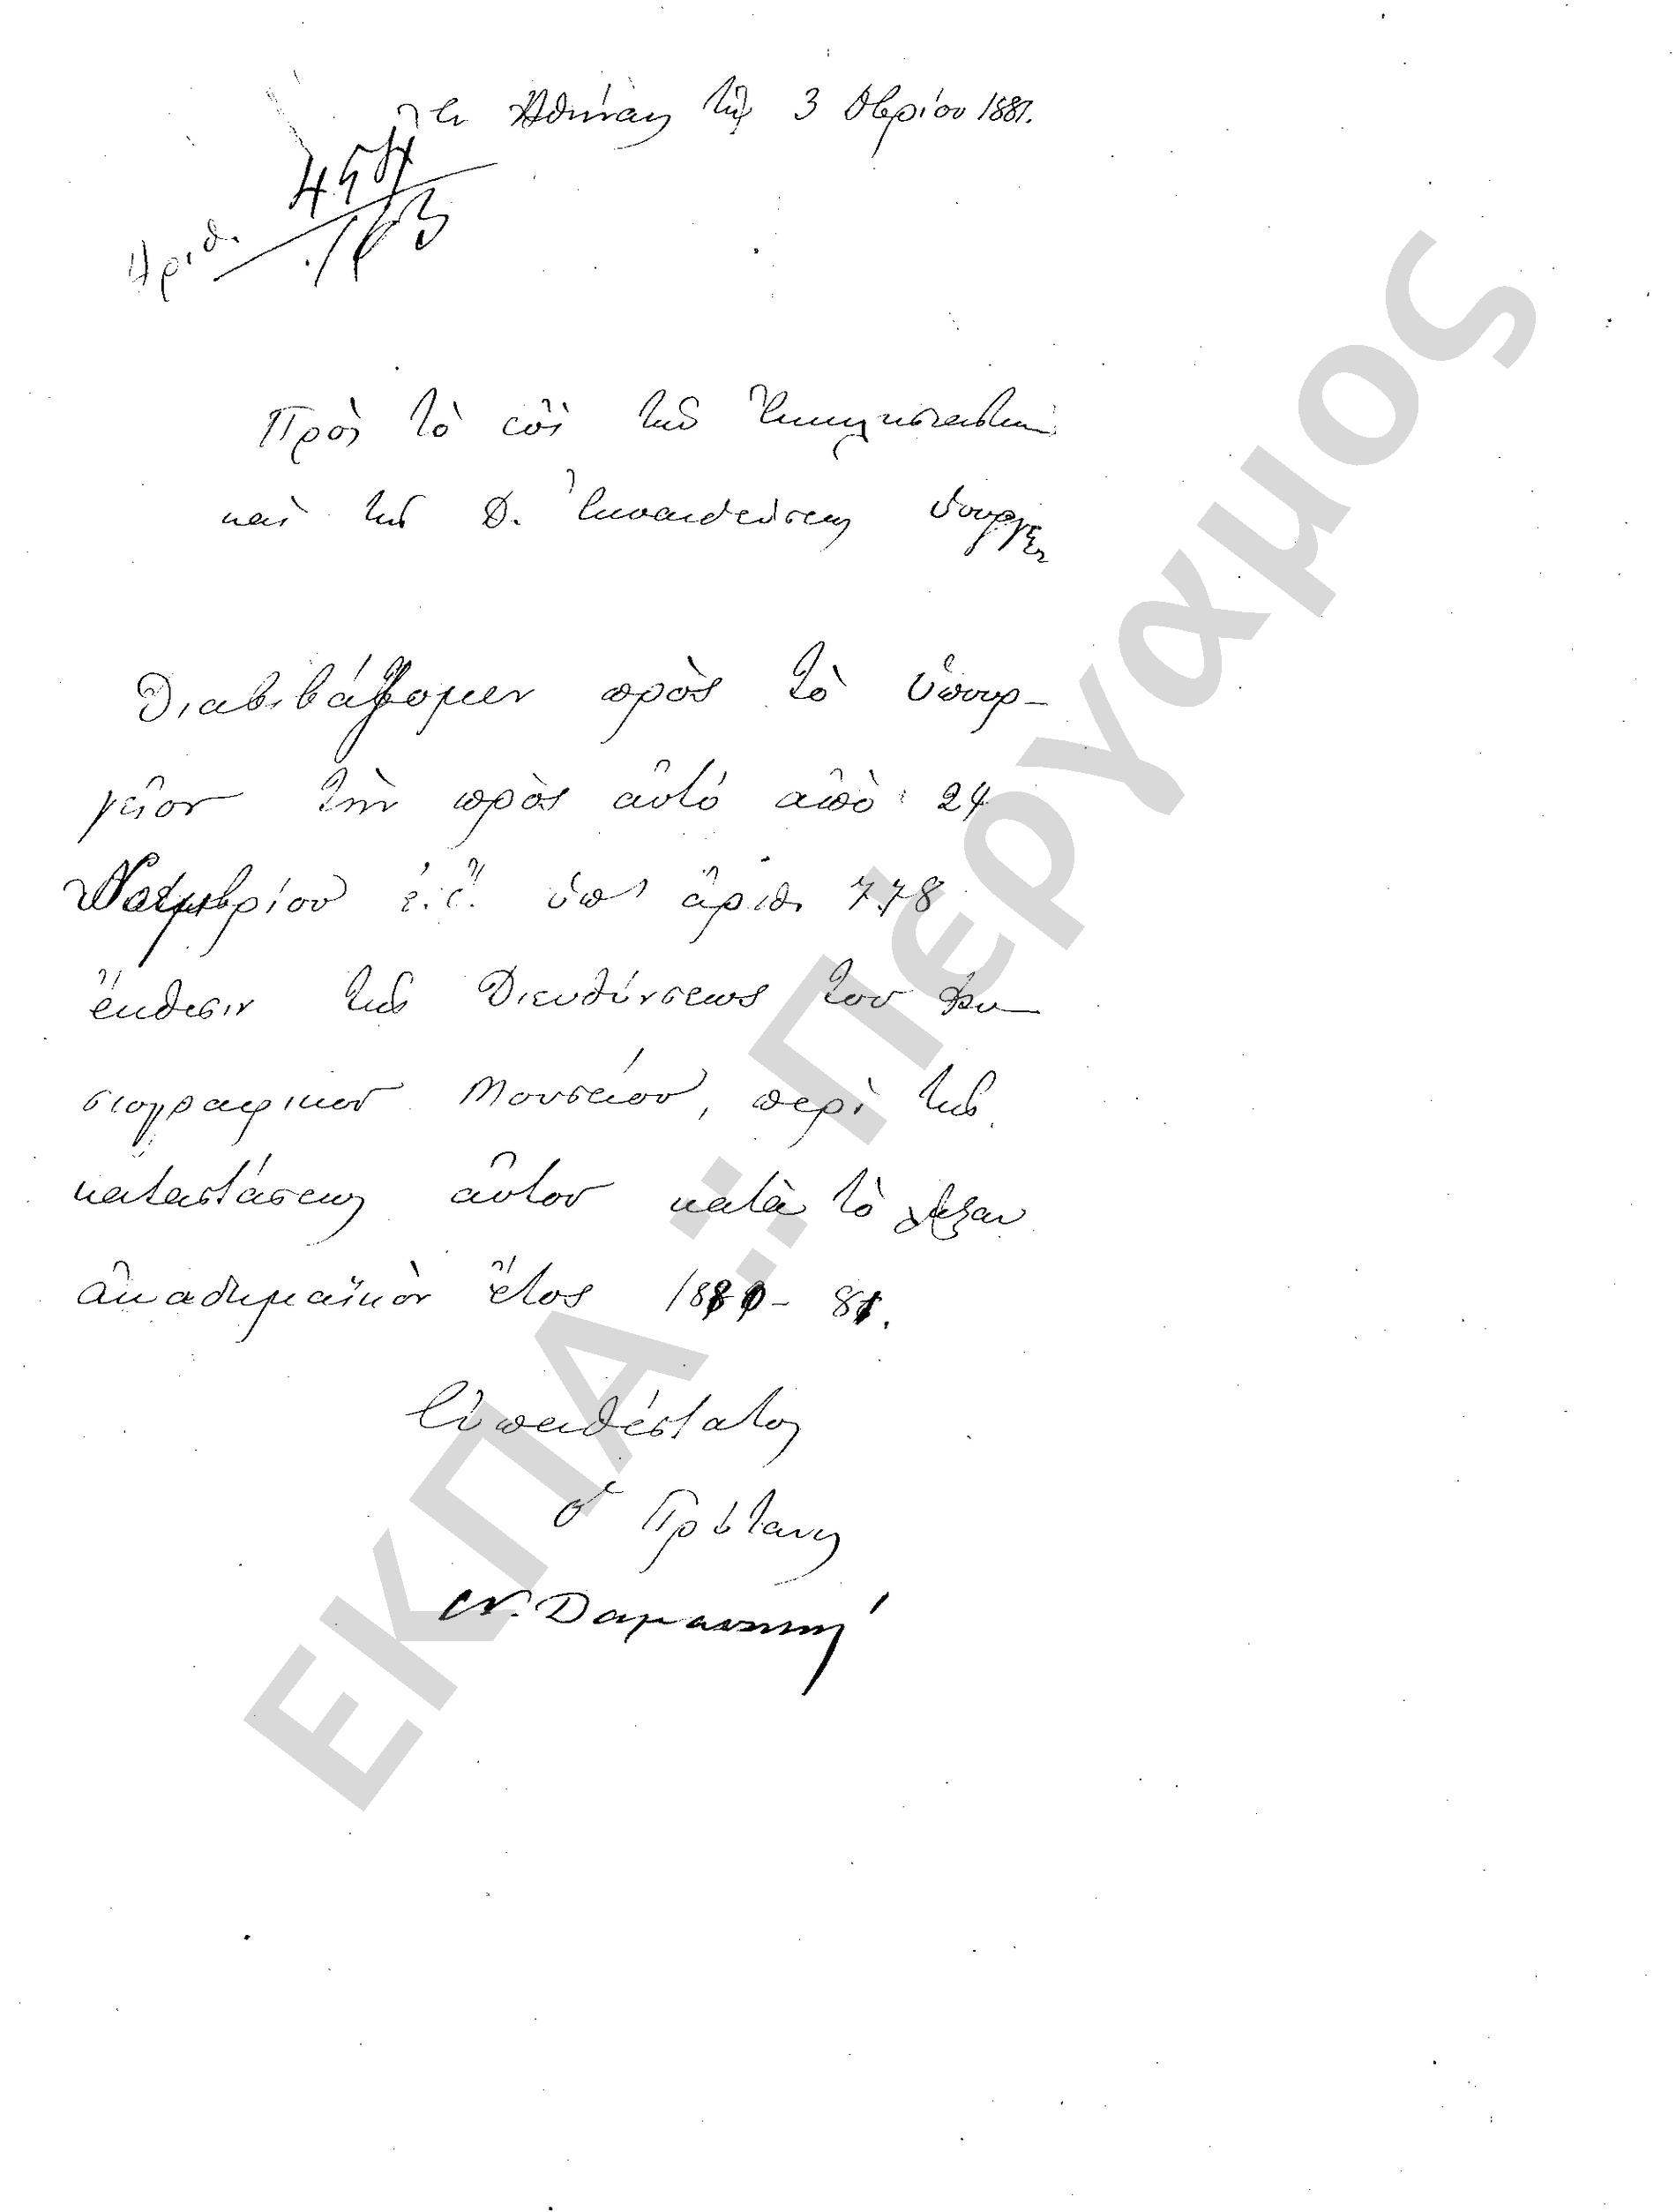 Ἐν Ἀθήναις τῇ 3 Δβρίου 1881.
Ἀριθ.
Πρὸς τὸ ἐπὶ τῶν Ἐκκλησιαστικῶν
καὶ τῆς Δ. Ἐκπαιδεύσεως Ὑπουργεῖον
Διαβιβάζομεν πρὸς τὸ ὑπουρ-
γεῖον τὴν πρὸς αὐτό ἀπὸ 24
Νοεμβρίου ἐ.ἔ. ὑπ' ἀριθ. 778
ἔκθεσιν τῆς Διευθύνσεως του Φυ-
σιογραφικοῦ Μουσείου, περὶ τῆς
καταστάσεως αὐτοῦ κατὰ τὸ λῆξαν
ἀκαδημαϊκὸν ἔτος 1880-81.
Εὐπειθέστατος
ὁ Πρύτανις
ΕΚΠΑ:: Πέργαμος